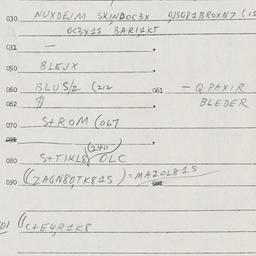 030 NUXDEJM SKINDOC3X OJSG81BROXN7 (15
OC3X1S BARI,1KT
031 —
050 BLEJX
060 BLUS/2 (212 061 — QPAXIR
062 $ BLEDER
070 S+ROM (067
(240)
080 S+TIKL8 OLC
090 ((ZAGN8O,TK81S) = MA2OL81S
((C+E4R1K8